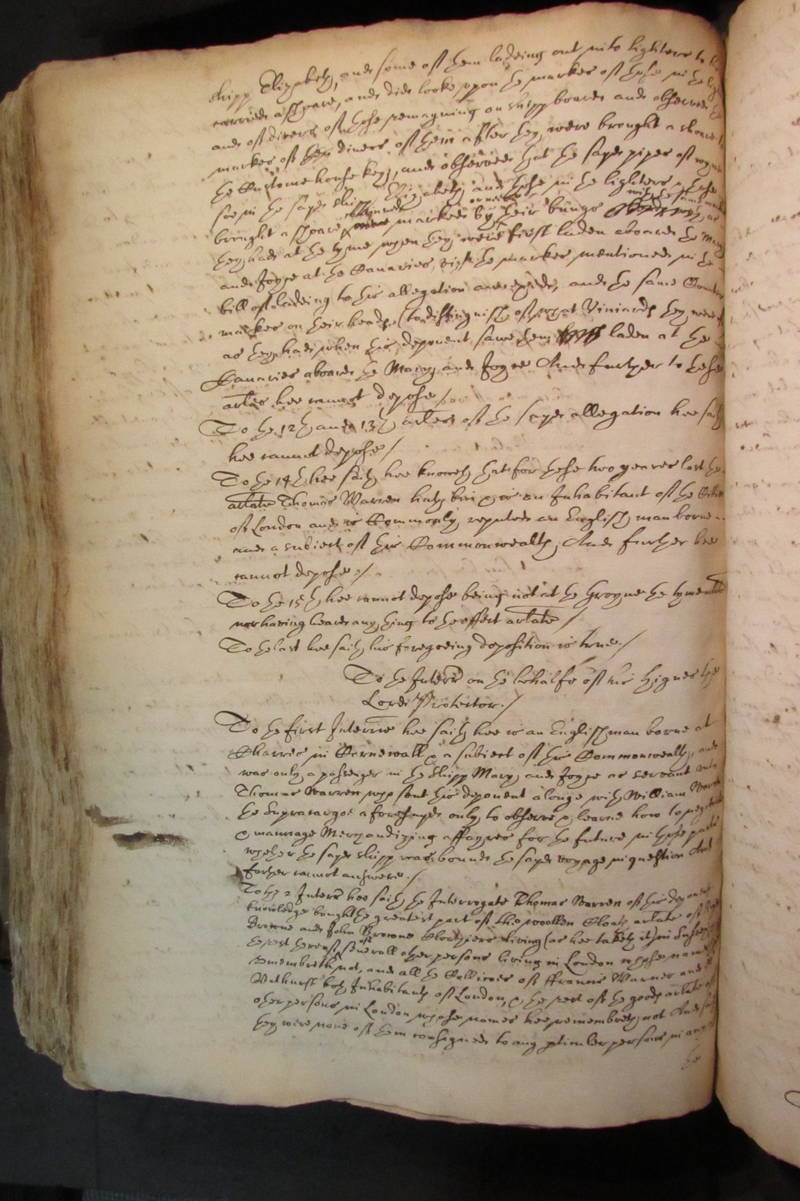 shipp Elizabeth, and some of them ladeing out into lighters to
carried a shoare, and did looke uppon the markes of those in the
and of divers of those remayning on shipp board and observed
markes of divers of them after they were brought a shoare
the Custome house key, and observed that the sayd pipes of
soe in the sayd shipp Elizabeth and those in the lighters
brought a shoare were marked by their bungs
they had at the tyme when they were first laden aboard the Mary
and Joyce at the Canaries with the markes mentioned in the
bill of ladeing to his allegation annexed, and the same
markes on their heads (to distinguish of what Viniards they were)
as they had when this deponent saw them laden at the
Canaries aboard the Mary and Joyce And further to these
articles hee cannot depose /
To the 12th and 13th articles of the sayd allegation hee saith
hee cannot depose /
To the 14th hee saith hee knoweth that for these two yeares last the
articulate Thomas Warren hath bin an Inhabitant of the Citie
of London and is Commonly reputed an English man borne
and a subiect of this Commonwealth, And further hee
cannot depose /
To the 15th hee cannot depose being not at the Groyne the tyme
nor having heard any thing to the effect articulate /
To the last hee saith his foregoeing deposition is true /
To the Interrs on the behalfe of his Highnes the
Lord Protector /
To the first Interrie hee saith hee is an Englishman borne at
in Cornewall & a subiect of this Commonwealth, and
was only a passenger in the shipp Mary and Joyce as servant
Thomas Warren whoe sent this deponent alonge with William
the Supracargoe aforesayd only to observe & learne how to negotiate
& mannage Merchandizing affayres for the future in those parts
whether the sayd shipp was bound the sayd voyage in question And
further cannot answere /
To the 2 Interr hee saith the Interrogate Thomas Warren of his deponents
knowledge bought the greatest part of the woollen Cloath articulate of
Browne and John Browne Clothiers living (as hee taketh it) in
the rest thereof of severall other persons living in London whose names
remembreth not, and all the Callicoes of ffrancis Warner and
both Inhabitants of London, & the rest of the goods articulate of
other persons in London whose names hee remembreth not And saith
they were none of them consigned to any particuler persons in any
the